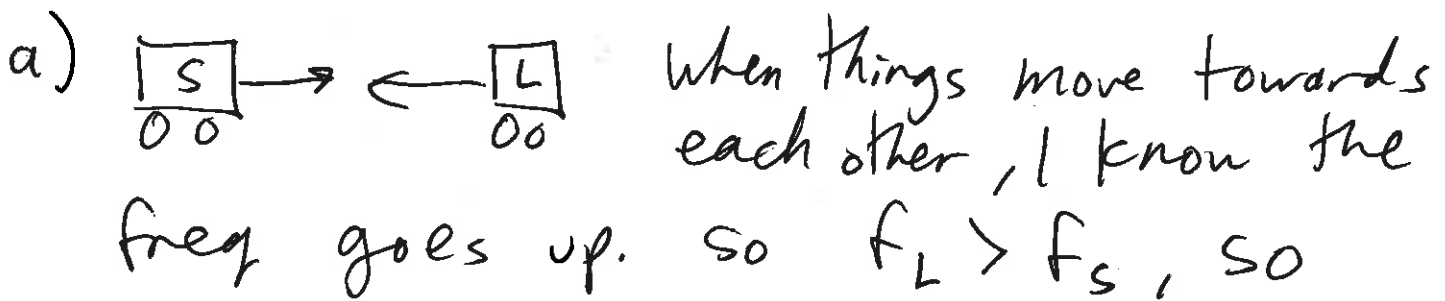 a) S L when things move towards
each other, I know the
freq goes up. so f_L > f_S, so